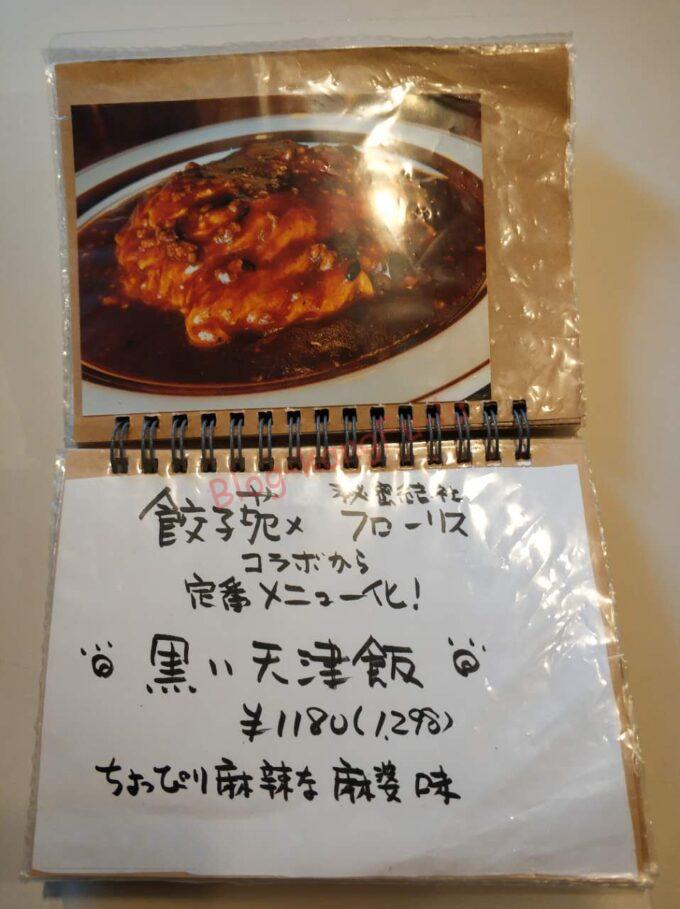 秘密結社
餃子苑× フローリス
コラボから
定番メニュー化!
黒い天津飯
¥1180(1,298)
ちょっぴり麻辣な麻婆味